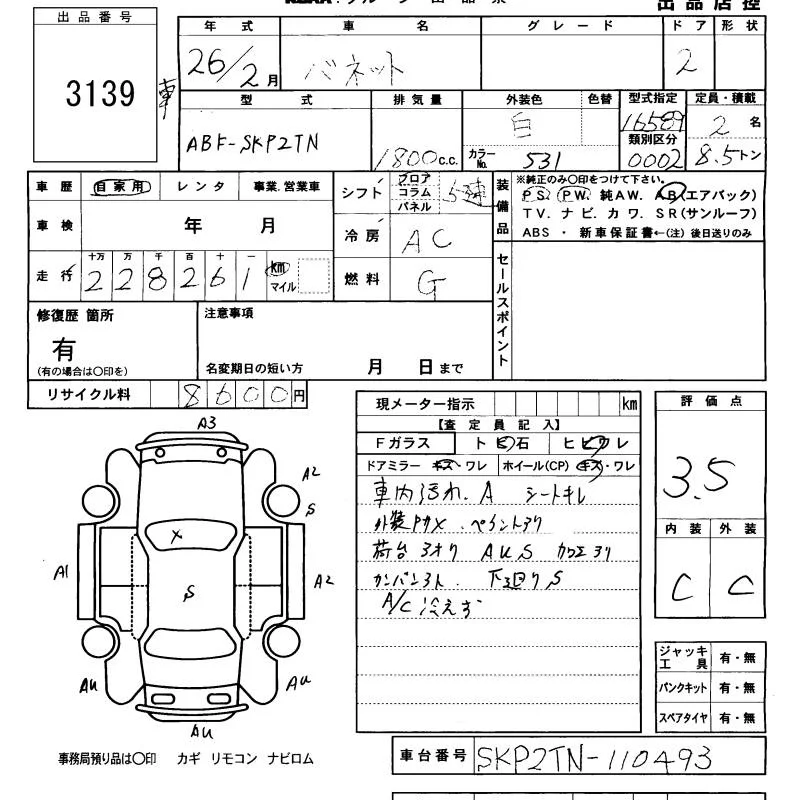 出品番号
3139
車
出品店控
年式 車名 グレード ドア 形状
26/2月 バネット 2
型式 排気量 外装色 色替 型式指定 定員・積載
ABF-SKP2TN 1800c.c. 白 16589 2名
カラーNo. 531 類別区分 0002 8.5トン
車歴 自家用 レンタ 事業.営業車
車検 年 月
走行 十万 万 千 百 十 一
228261 km マイル
シフト フロア コラム パネル 5速
冷房 AC
燃料 G
装備品
※純正のみ〇印をつけて下さい。
PS. PW. 純AW. AB(エアバック)
TV. ナビ. カワ. SR(サンルーフ)
ABS ・ 新車保証書←(注) 後日送りのみ
セールスポイント
修復歴 箇所
有
(有の場合は〇印を)
注意事項
名変期日の短い方 月 日まで
リサイクル料 8600円
現メーター指示 km
【査定員記入】
Fガラス トビ石 ヒビワレ
ドアミラー キズ・ワレ ホイール(CP) キズ・ワレ
車内汚れ. A シートキレ
外装アカメ. ペイントヨリ
荷台 AUS カロエ
カンバン 下廻りS
A/C 冷えず
評価点
3.5
内装 外装
C C
A3
A2
S
X
A1
S
A2
AU
AU
AU
ジャッキ工具 有・無
パンクキット 有・無
スペアタイヤ 有・無
事務局預り品は〇印 カギ リモコン ナビロム
車台番号 SKP2TN-110493